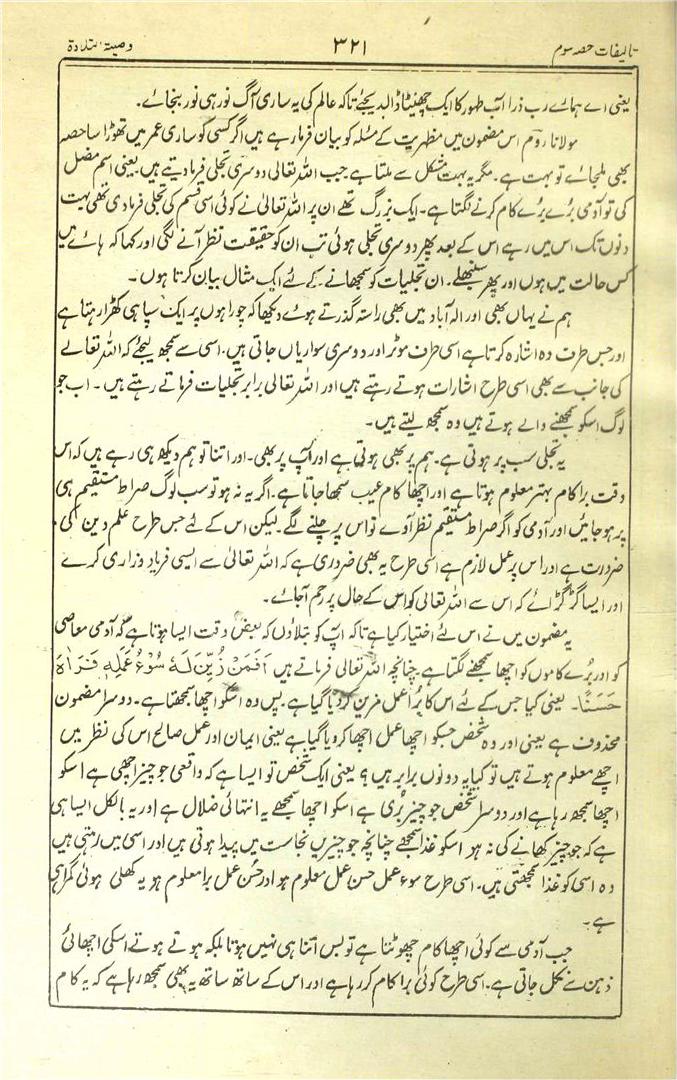 تالیفات حصہ سوم ۳۲۱ وصیۃ التلاوۃ
یعنی اے ہمارے رب ذرا آب طہور کا ایک چھینٹا ڈالدیجئے تاکہ عالم کی یہ ساری آگ نور ہی نور بنجائے۔
مولانا رومؒ اس مضمون میں مظہریت کے مسئلہ کو بیان فرما رہے ہیں اگر کسی کو ساری عمر میں تھوڑا سا حصہ
بھی ملجائے تو بہت ہے۔ مگر یہ بہت مشکل سے ملتا ہے جب اللہ تعالی دوسری تجلی فرما دیتے ہیں یعنی اسم مضل
کی تو آدمی بُرے بُرے کام کرنے لگتا ہے۔ ایک بزرگ تھے ان پر اللہ تعالی نے کوئی اسی قسم کی تجلی فرما دی تھی بہت
دنوں تک اس میں رہے اس کے بعد پھر دوسری تجلی ہوئی تب ان کو حقیقت نظر آنے لگی اور کہا کہ ہائے میں
کس حالت میں ہوں اور پھر سنبھلے۔ ان تجلیات کو سمجھانے کے لئے ایک مثال بیان کرتا ہوں۔
ہم نے یہاں بھی اور الہ آباد میں بھی راستہ گذرتے ہوئے دیکھا کہ چوراہوں پر ایک سپاہی کھڑا رہتا ہے
اور جس طرف وہ اشارہ کرتا ہے اسی طرف موٹر اور دوسری سواریاں جاتی ہیں۔ اسی سے سمجھ لیجئے کہ اللہ تعالے
کی جانب سے بھی اسی طرح اشارات ہوتے رہتے ہیں اور اللہ تعالی برابر تجلیات فرماتے رہتے ہیں۔ اب جو
لوگ اسکو سمجھنے والے ہوتے ہیں وہ سمجھ لیتے ہیں۔
یہ تجلی سب پر ہوتی ہے۔ ہم پر بھی ہوتی ہے اور آپ پر بھی۔ اور اتنا تو ہم دیکھ ہی رہے ہیں کہ اس
وقت برا کام بہتر معلوم ہوتا ہے اور اچھا کام عیب سمجھا جاتا ہے۔ اگر یہ نہ ہو تو سب لوگ صراط مستقیم ہی
پر ہو جائیں اور آدمی کو اگر صراط مستقیم نظر آوے تو اس پر چلنے لگے۔ لیکن اس کے لئے جس طرح علم دین کی
ضرورت ہے اور اس پر عمل لازم ہے اسی طرح یہ بھی ضروری ہے کہ اللہ تعالیٰ سے ایسی فریاد وزاری کرے
اور ایسا گڑگڑائے کہ اس سے اللہ تعالی کو اس کے حال پر رحم آجائے۔
یہ مضمون میں نے اس لئے اختیار کیا ہے تاکہ آپ کو بتلاؤں کہ بعض وقت ایسا ہوتا ہے کہ آدمی معاصی
کو اور بُرے کاموں کو اچھا سمجھنے لگتا ہے چنانچہ اللہ تعالی فرماتے ہیں اَفَمَنْ زُیِّنَ لَهٗ سُوْٓءُ عَمَلِهٖ فَرَاٰهُ
حَسَنًا۔ یعنی کیا جس کے لئے اس کا بُرا عمل مزین کر دیا گیا ہے۔ پس وہ اسکو اچھا سمجھتا ہے۔ دوسرا مضمون
محذوف ہے یعنی اور وہ شخص جسکو اچھا عمل اچھا کر دیا گیا ہے یعنی ایمان اور عمل صالح اس کی نظر میں
اچھے معلوم ہوتے ہیں تو کیا یہ دونوں برابر ہیں؟ یعنی ایک شخص تو ایسا ہے کہ واقعی جو چیز اچھی ہے اسکو
اچھا سمجھ رہا ہے اور دوسرا شخص جو چیز بُری ہے اسکو اچھا سمجھے یہ انتہائی ضلال ہے اور یہ بالکل ایسا ہی
ہے کہ جو چیز کھانے کی نہ ہو اسکو غذا سمجھے چنانچہ جو چیزیں نجاست میں پیدا ہوتی ہیں اور اسی میں رہتی ہیں
وہ اسی کو غذا سمجھتی ہیں۔ اسی طرح سوء عمل حسن عمل معلوم ہو اور حُسنِ عمل برا معلوم ہو یہ کھلی ہوئی گمراہی
ہے۔
جب آدمی سے کوئی اچھا کام چھوٹتا ہے تو بس اتنا ہی نہیں ہوتا بلکہ ہوتے ہوتے اسکی اچھائی
ذہن سے نکل جاتی ہے۔ اسی طرح کوئی برا کام کر رہا ہے اور اس کے ساتھ ساتھ یہ بھی سمجھ رہا ہے کہ یہ کام